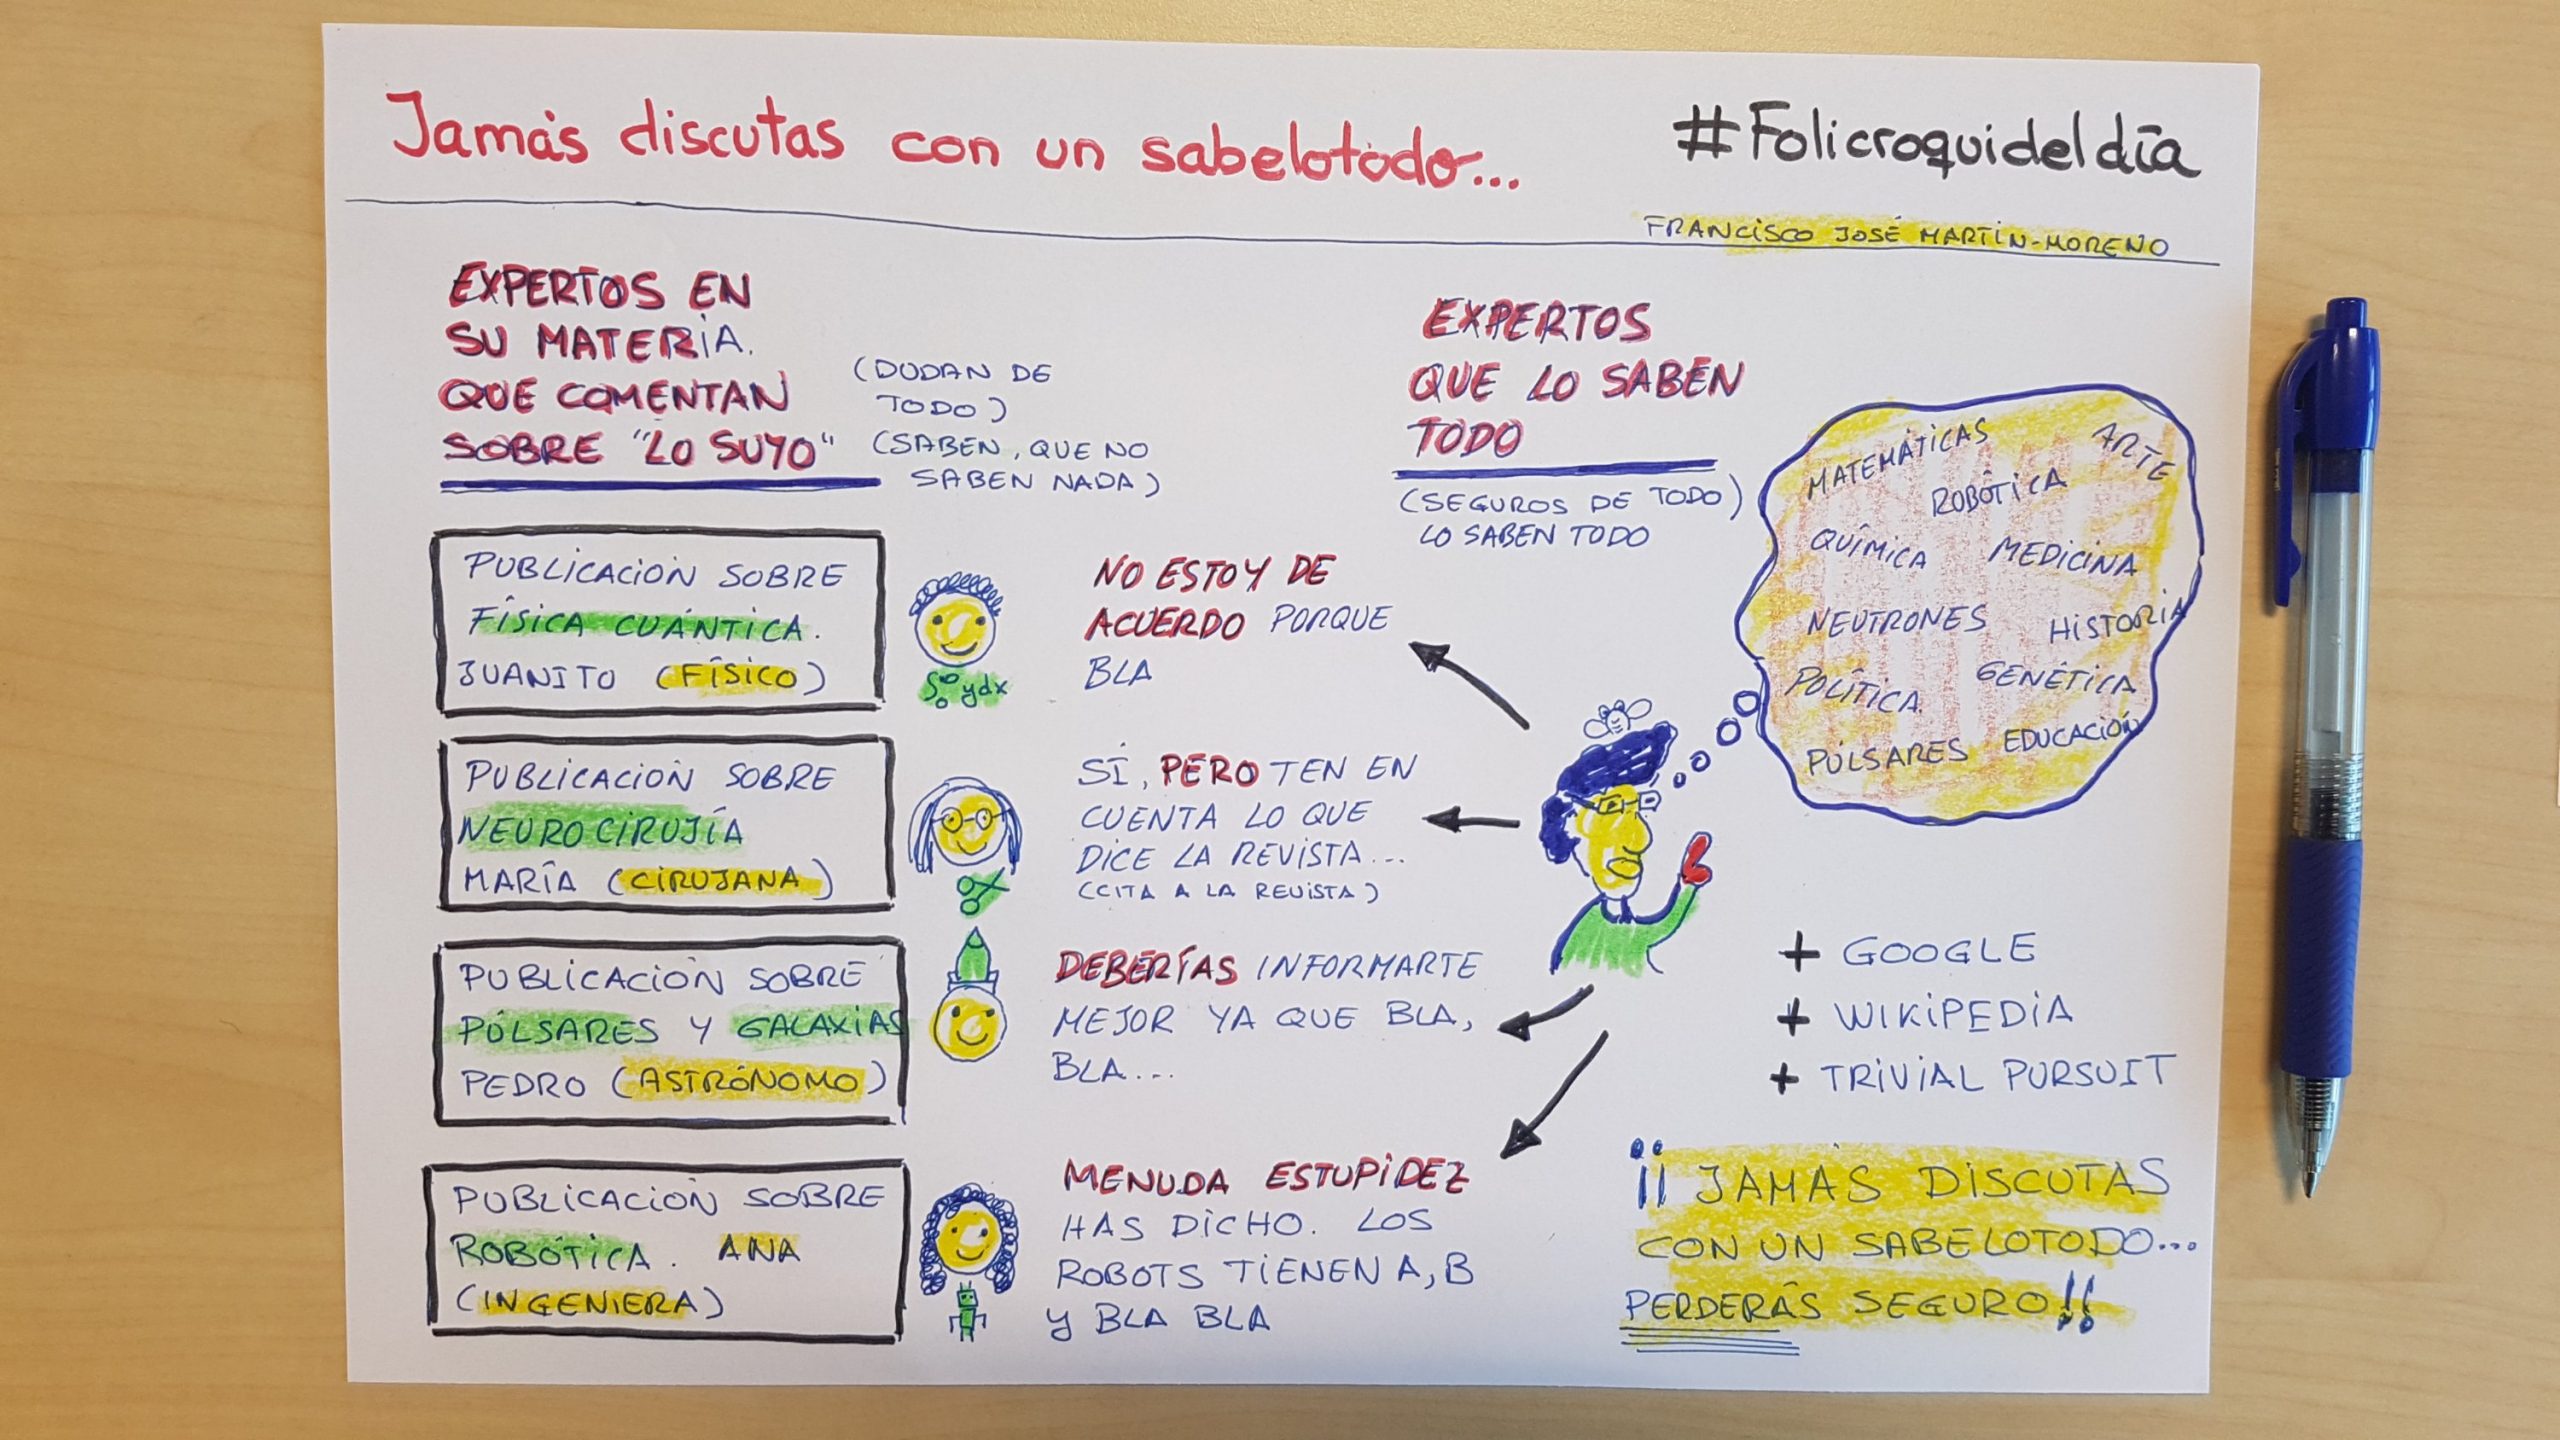 Jamás discutas con un sabelotodo...
#Folicroquideldía
FRANCISCO JOSÉ MARTÍN-MORENO
EXPERTOS EN
SU MATERIA.
QUE COMENTAN
SOBRE "LO SUYO"
(DUDAN DE
TODO)
(SABEN, QUE NO
SABEN NADA)
PUBLICACIÓN SOBRE
FÍSICA CUÁNTICA.
JUANITO (FÍSICO)
PUBLICACIÓN SOBRE
NEUROCIRUJÍA
MARÍA (CIRUJANA)
PUBLICACIÓN SOBRE
PÚLSARES Y GALAXIAS
PEDRO (ASTRÓNOMO)
PUBLICACIÓN SOBRE
ROBÓTICA. ANA
(INGENIERA)
NO ESTOY DE
ACUERDO PORQUE
BLA
SÍ, PERO TEN EN
CUENTA LO QUE
DICE LA REVISTA...
(CITA A LA REVISTA)
DEBERÍAS INFORMARTE
MEJOR YA QUE BLA,
BLA...
MENUDA ESTUPIDEZ
HAS DICHO. LOS
ROBOTS TIENEN A, B
Y BLA BLA
EXPERTOS
QUE LO SABEN
TODO
(SEGUROS DE TODO)
LO SABEN TODO
MATEMÁTICAS
ARTE
ROBÓTICA
QUÍMICA
MEDICINA
NEUTRONES
HISTORIA
POLÍTICA
GENÉTICA
PÚLSARES
EDUCACIÓN
+ GOOGLE
+ WIKIPEDIA
+ TRIVIAL PURSUIT
¡¡JAMÁS DISCUTAS
CON UN SABELOTODO...
PERDERÁS SEGURO!!